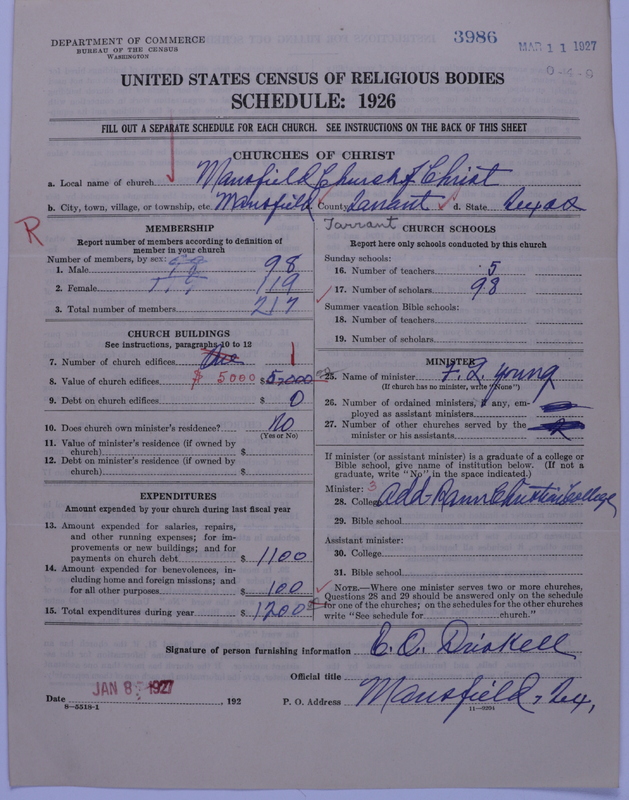 DEPARTMENT OF COMMERCE
BUREAU OF THE CENSUS
WASHINGTON
3986
MAR 11 1927
UNITED STATES CENSUS OF RELIGIOUS BODIES
SCHEDULE: 1926
FILL OUT A SEPARATE SCHEDULE FOR EACH CHURCH. SEE INSTRUCTIONS ON THE BACK OF THIS SHEET
CHURCHES OF CHRIST
a. Local name of church Mansfield Church of Christ
b. City, town, village, or township, etc. Mansfield County Tarrant d. State Texas
R
Tarrant
MEMBERSHIP
Report number of members according to definition of
member in your church
Number of members, by sex:
1. Male 98
2. Female 119
3. Total number of members 217
CHURCH BUILDINGS
See instructions, paragraphs 10 to 12
7. Number of church edifices One 1
8. Value of church edifices $ 5000 $ 5,000
9. Debt on church edifices $ 0
10. Does church own minister's residence? No
(Yes or No)
11. Value of minister's residence (if owned by
church) $
12. Debt on minister's residence (if owned by
church) $
EXPENDITURES
Amount expended by your church during last fiscal year
13. Amount expended for salaries, repairs,
and other running expenses; for im-
provements or new buildings; and for
payments on church debt $ 1100
14. Amount expended for benevolences, in-
cluding home and foreign missions; and
for all other purposes $ 100
15. Total expenditures during year $ 1200
CHURCH SCHOOLS
Report here only schools conducted by this church
Sunday schools:
16. Number of teachers 5
17. Number of scholars 98
Summer vacation Bible schools:
18. Number of teachers
19. Number of scholars
MINISTER
25. Name of minister F. L. Young
(If church has no minister, write "None")
26. Number of ordained ministers, if any, em-
ployed as assistant ministers
27. Number of other churches served by the
minister or his assistants
If minister (or assistant minister) is a graduate of a college or
Bible school, give name of institution below. (If not a
graduate, write "No" in the space indicated.)
Minister: 3
28. College Add-Rann Christian College
29. Bible school
Assistant minister:
30. College
31. Bible school
NOTE.—Where one minister serves two or more churches,
Questions 28 and 29 should be answered only on the schedule
for one of the churches; on the schedules for the other churches
write "See schedule for church."
Signature of person furnishing information C. Q. Driskell
Official title
Date JAN 8 1927, 192 P. O. Address Mansfield, Tex,
8-5518-1 11-9204